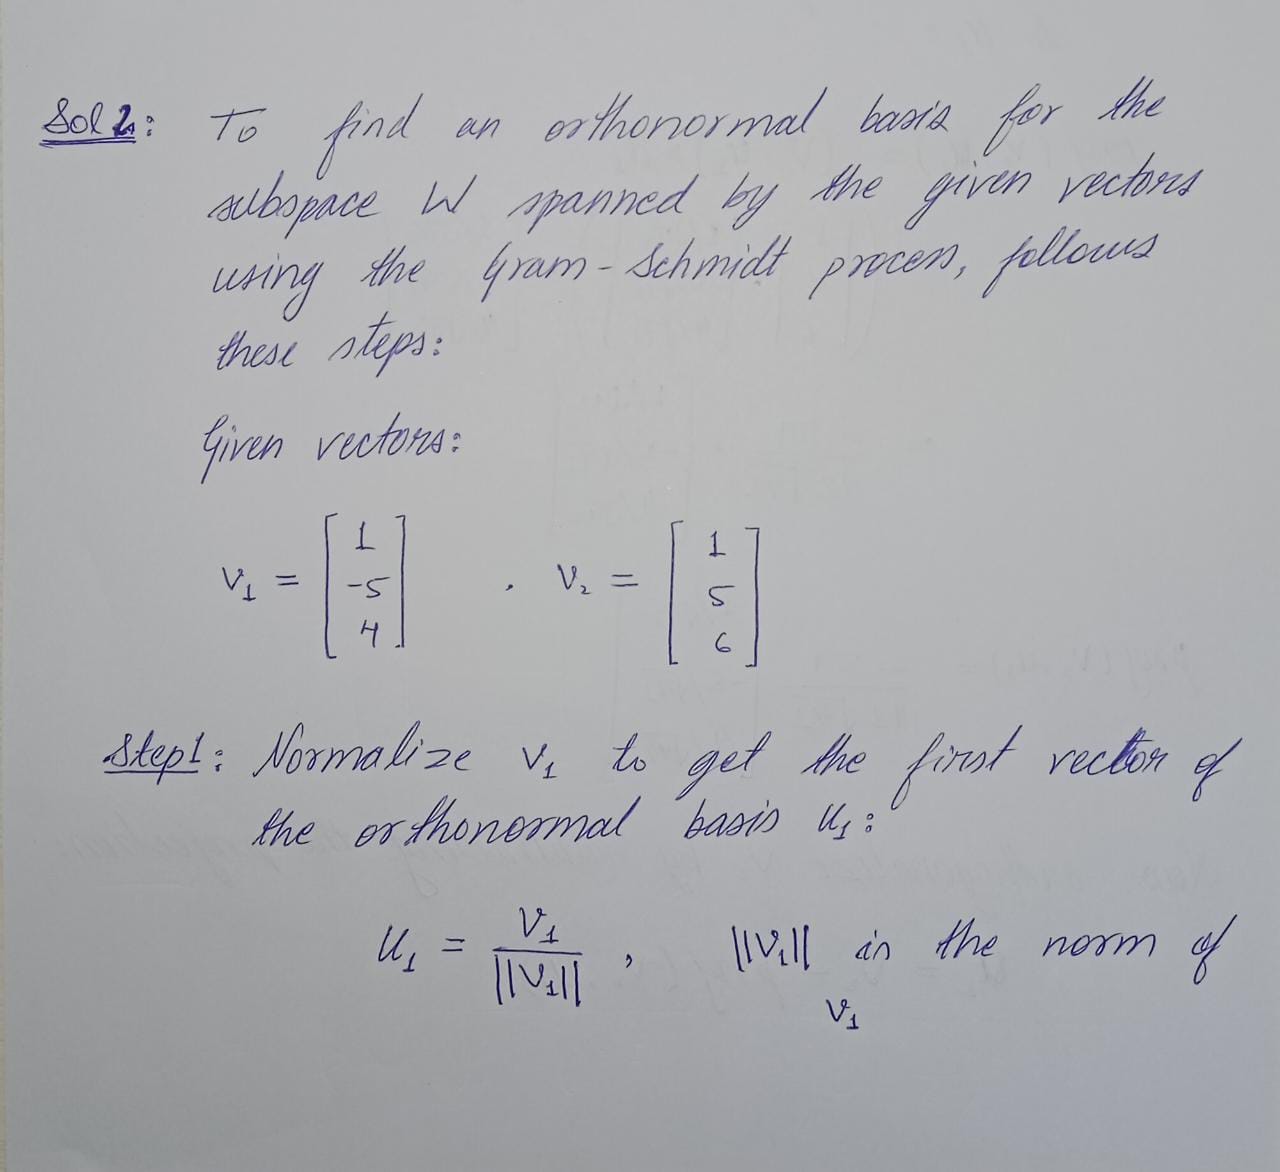 Sol 2: To find an orthonormal basis for the
subspace W spanned by the given vectors
using the Gram-Schmidt process, follows
these steps:
Given vectors:
V₁ = [1 -5 4] , V₂ = [1 5 6]
Step1: Normalize V₁ to get the first vector of
the orthonormal basis U₁:
U₁ = V₁ / ||V₁|| , ||V₁|| is the norm of
V₁